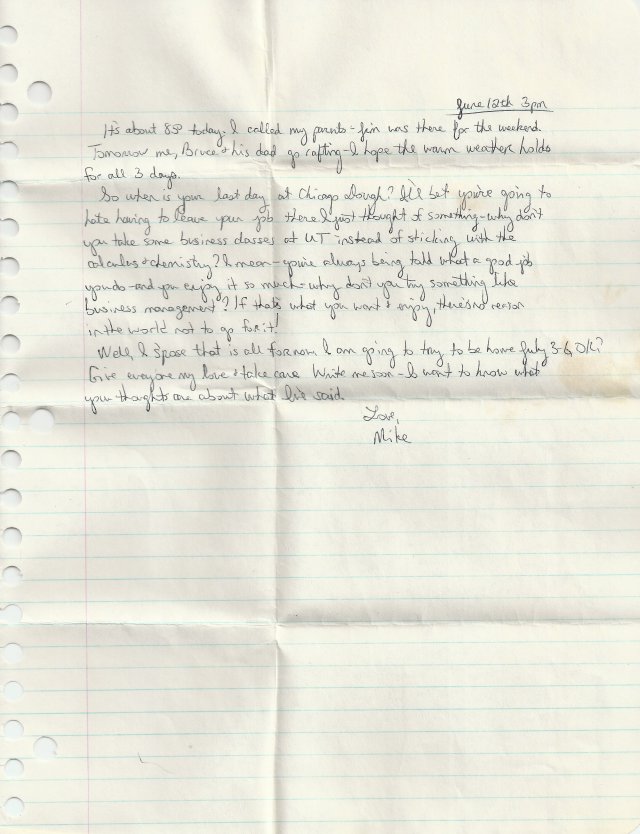 June 12th 3pm
It's about 85° today. I called my parents - Jim was there for the weekend.
Tomorrow me, Bruce & his dad go rafting - I hope the warm weather holds
for all 3 days.
So when is your last day at Chicago Dough? I'll bet you're going to
hate having to leave your job there. I just thought of something - why don't
you take some business classes at UT instead of sticking with the
calculus & chemistry? I mean - you're always being told what a good job
you do - and you enjoy it so much - why don't you try something like
business management? If that's what you want & enjoy, there's no reason
in the world not to go for it!
Well, I spose that is all for now. I am going to try to be home July 3-6, OK?
Give everyone my love & take care. Write me soon - I want to know what
your thoughts are about what I've said.
Love,
Mike